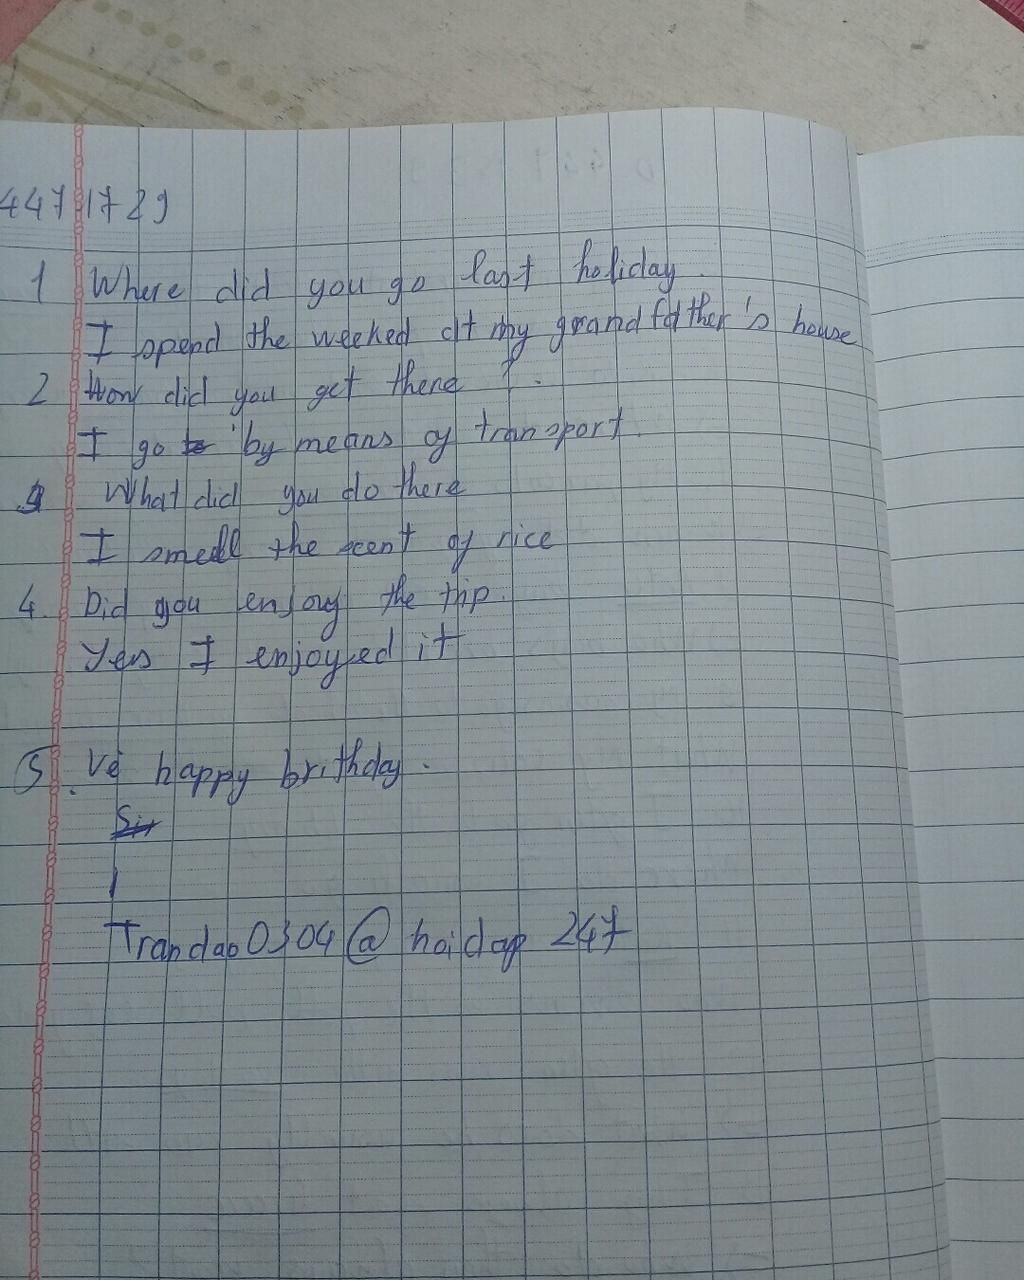 4471729
1 Where did you go last holiday.
I spend the weeked at my grandfather's house
2 How did you get there ?.
I go by means of transport
What did you do there
I smell the scent of rice
4. Did you enjoy the trip.
Yes I enjoyed it
5. Vẽ happy brithday.
Trandao0304@hoidap 247